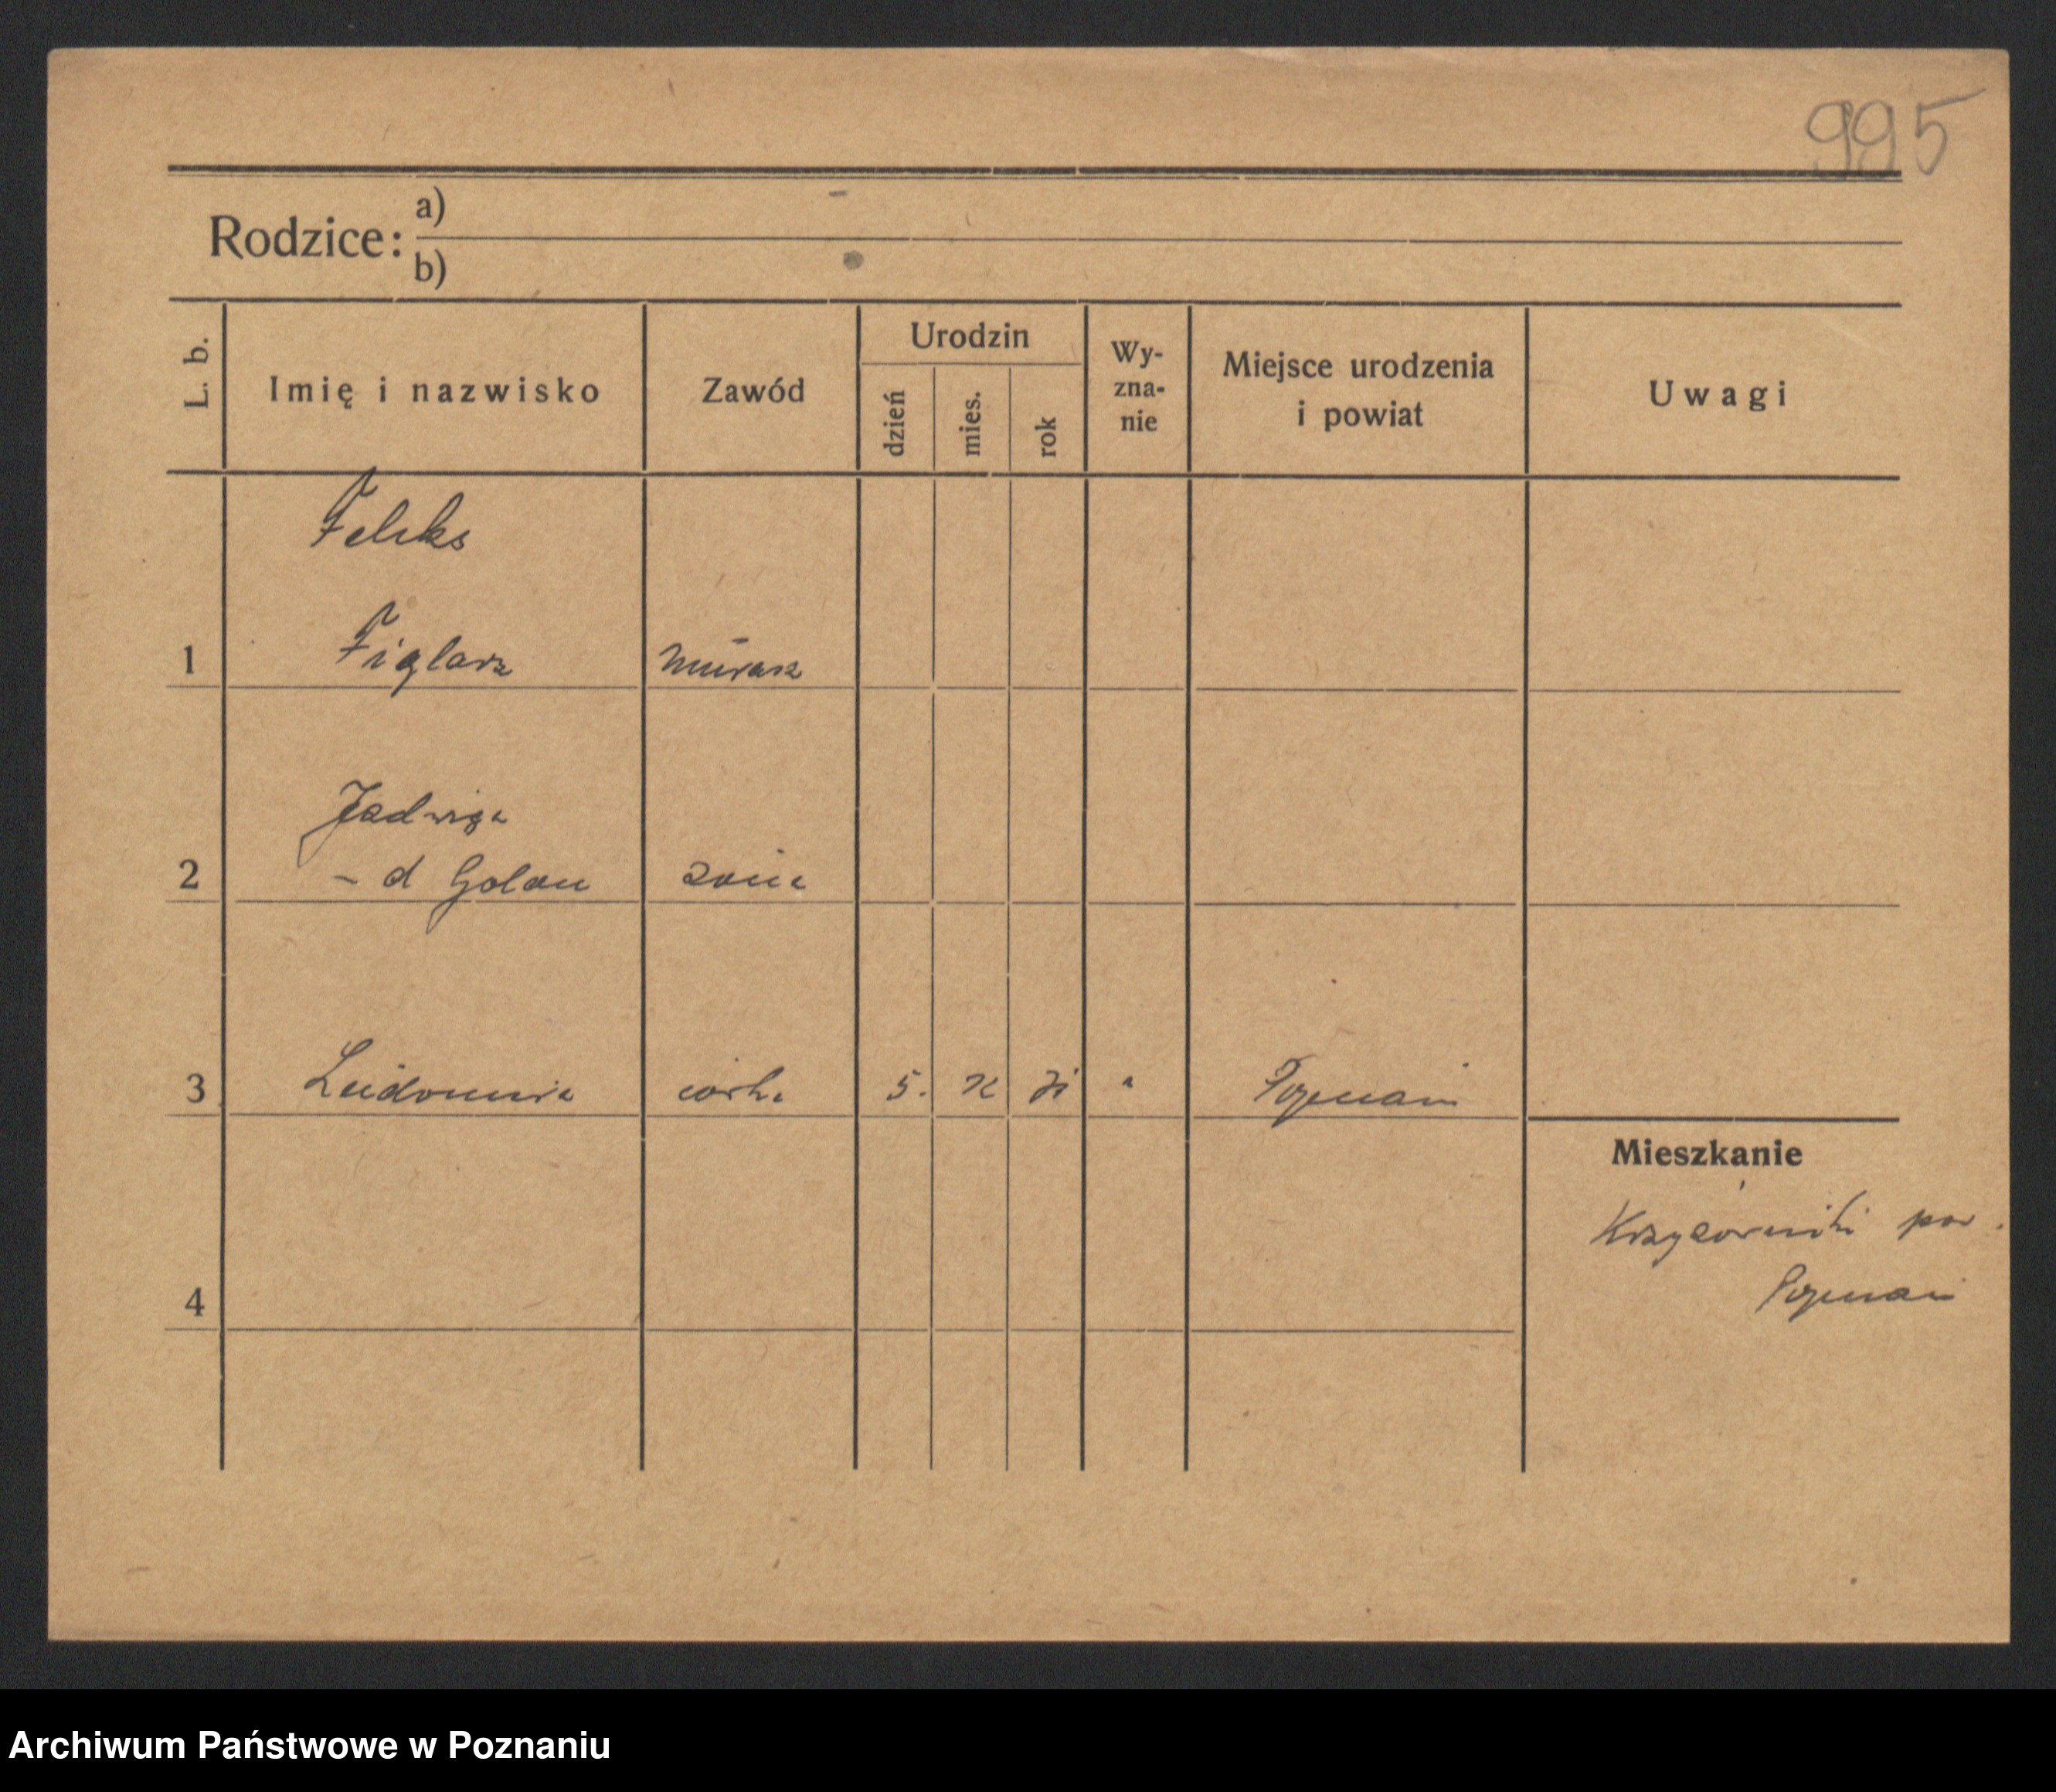 995
Rodzice: a)
b)
L. b.
Imię i nazwisko
Zawód
Urodzin
dzień
mies.
rok
Wy-
zna-
nie
Miejsce urodzenia
i powiat
Uwagi
Feliks
1 Figlarz murarz
Jadwiga
2 - d Golau żona
3 córka 5. Poznań
Mieszkanie
pow.
4 Poznań
Archiwum Państwowe w Poznaniu